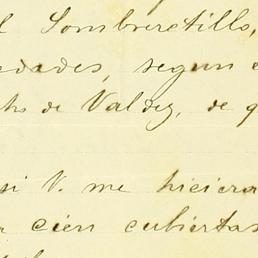 l Sombreretillo,
edades, segun e
cho de Valdez, de q
si V. me hiciera
r cien cubiertas